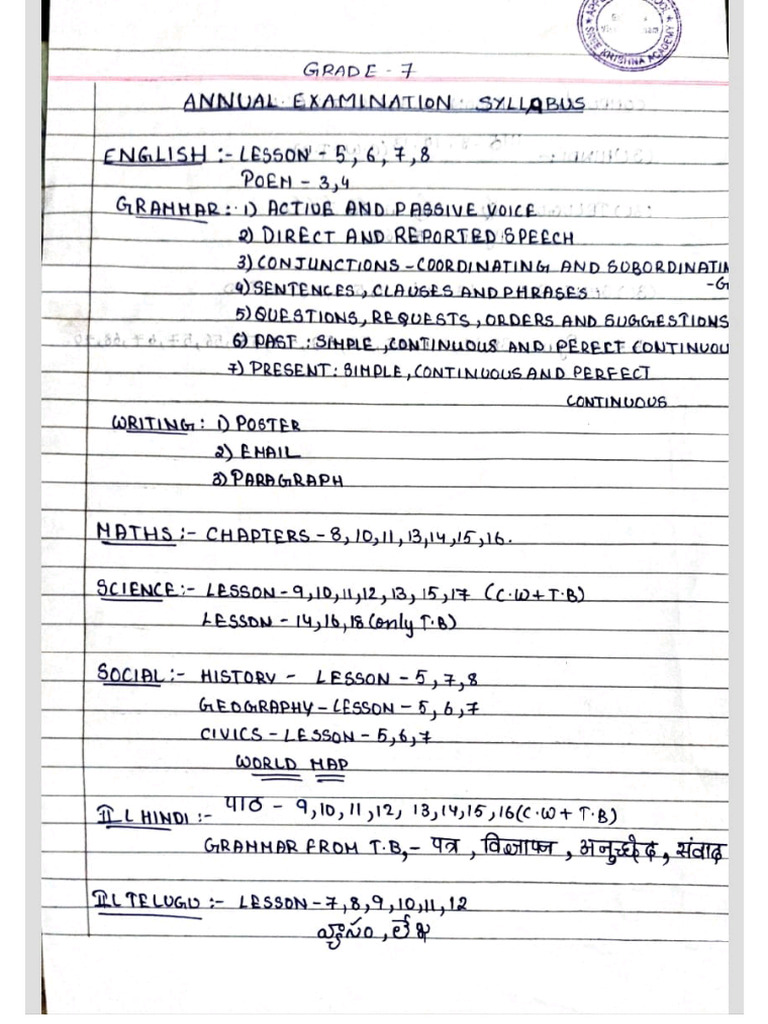 SREE KRISHNA ACADEMY
GRADE - 7
ANNUAL EXAMINATION SYLLABUS
ENGLISH :- LESSON - 5, 6, 7, 8
POEM - 3,4
GRAMMAR: 1) ACTIVE AND PASSIVE VOICE
2) DIRECT AND REPORTED SPEECH
3) CONJUNCTIONS - COORDINATING AND SUBORDINATIN
-G
4) SENTENCES, CLAUSES AND PHRASES
5) QUESTIONS, REQUESTS, ORDERS AND SUGGESTIONS
6) PAST : SIMPLE, CONTINUOUS AND PERECT CONTINUOU
7) PRESENT: SIMPLE, CONTINUOUS AND PERFECT
CONTINUOUS
WRITING: 1) POSTER
2) EMAIL
3) PARAGRAPH
MATHS :- CHAPTERS - 8, 10, 11, 13, 14, 15, 16.
SCIENCE:- LESSON - 9, 10, 11, 12, 13, 15, 17 (C.W + T.B)
LESSON - 14, 16, 18 (only T.B)
SOCIAL :- HISTORY - LESSON - 5, 7, 8
GEOGRAPHY - LESSON - 5, 6, 7
CIVICS - LESSON - 5, 6, 7
WORLD MAP
II L HINDI :- पाठ - 9, 10, 11, 12, 13, 14, 15, 16 (C.W + T.B)
GRAMMAR FROM T.B, - पत्र, विज्ञापन, अनुच्छेद, संवाद
II L TELUGU :- LESSON - 7, 8, 9, 10, 11, 12
వ్యాసం, లేఖ